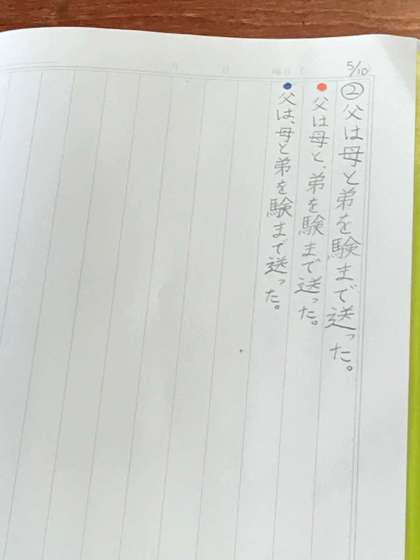 5/10
②父は母と弟を験まで送った。
父は母と、弟を験まで送った。
父は、母と弟を験まで送った。